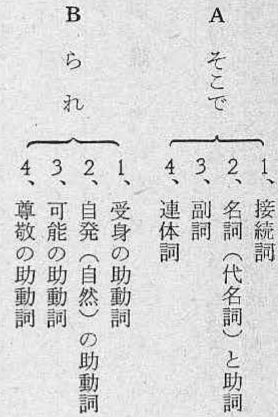 A そこで
1、接続詞
2、名詞（代名詞）と助詞
3、副詞
4、連体詞
B られ
1、受身の助動詞
2、自発（自然）の助動詞
3、可能の助動詞
4、尊敬の助動詞